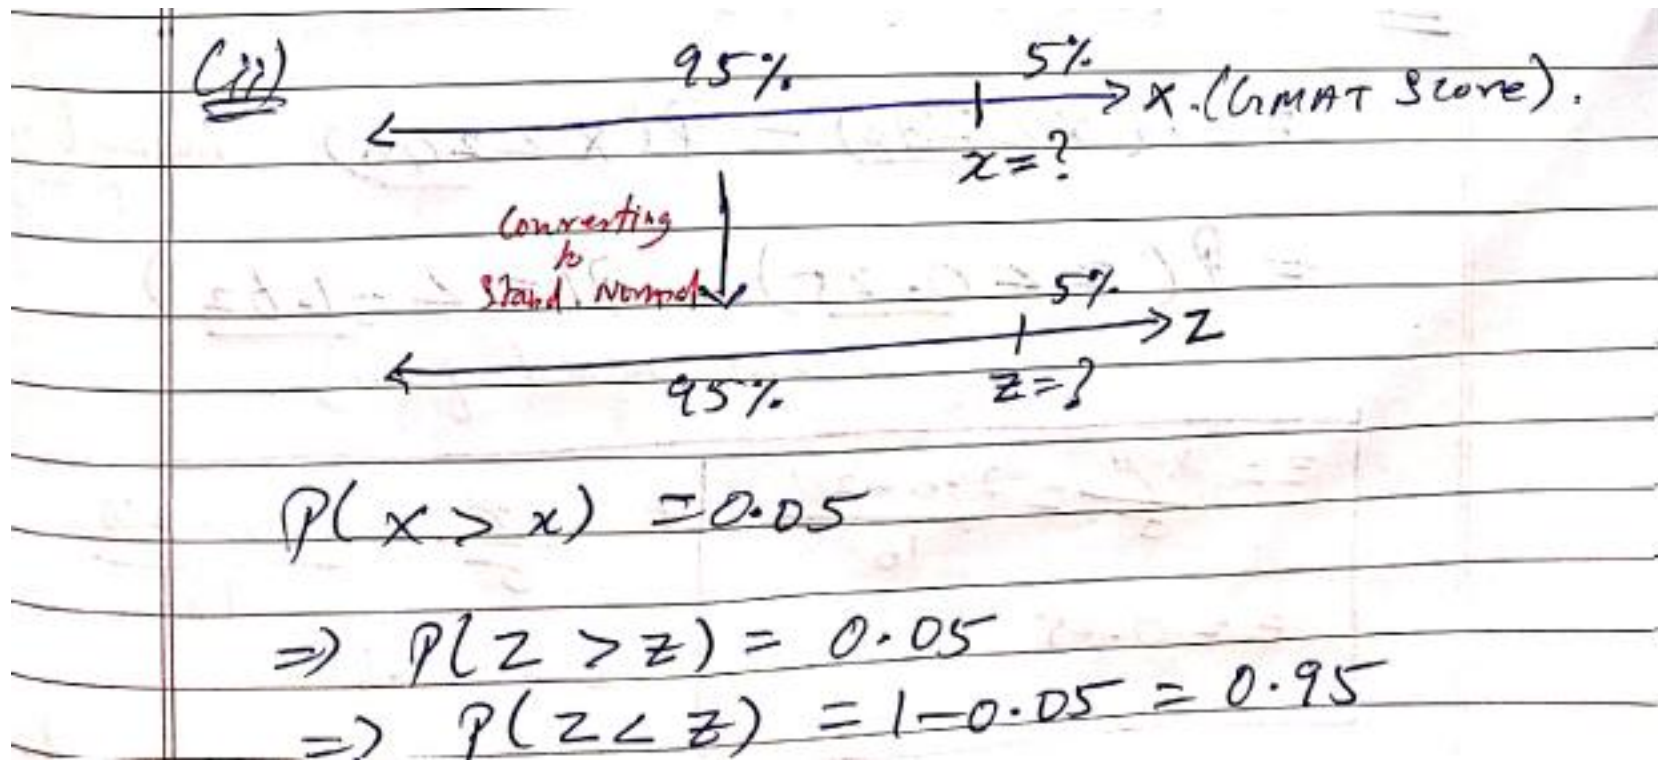 (ii)
95% 5%
X. (GMAT Score).
x=?
Converting
to
Stand. Normal
5%
Z
95% z=?
P(X > x) = 0.05
=> P(Z > z) = 0.05
=> P(Z < z) = 1-0.05 = 0.95